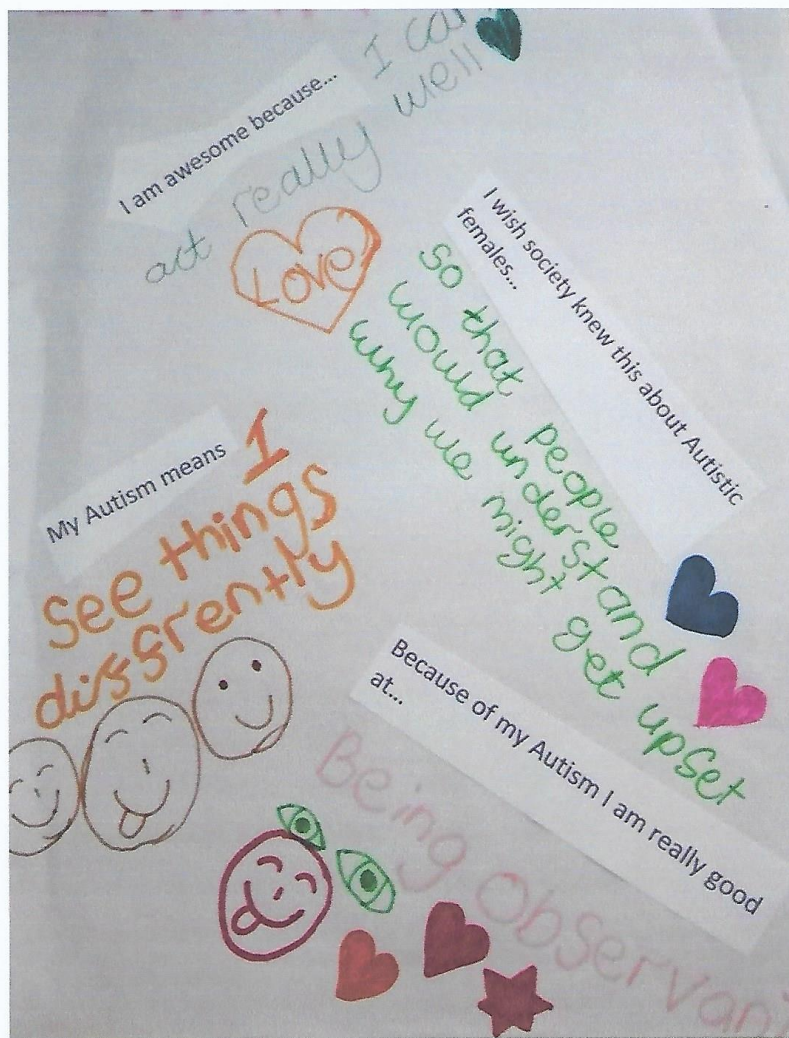 I am awesome because... I can
act really well
LOVE
I wish society knew this about Autistic
females...
so that people
would understand
why we might get upset
My Autism means I
see things
diffrently
Because of my Autism I am really good
at...
Being observant